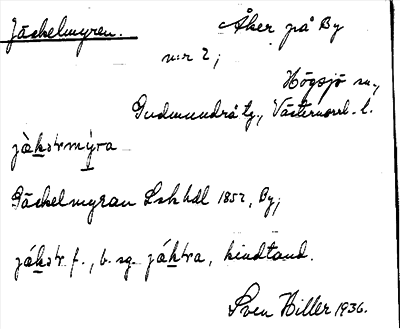 Jäckelmyren. Åker på By
n:r 2;
Högsjö sn.,
Gudmundrå tg, Västernorrl. l.
jäkstrmýra
Jäckelmyran Lskhdl 1852, By;
jákstr f., b. sg. jáktra, kindtand.
Sven Hiller 1936.